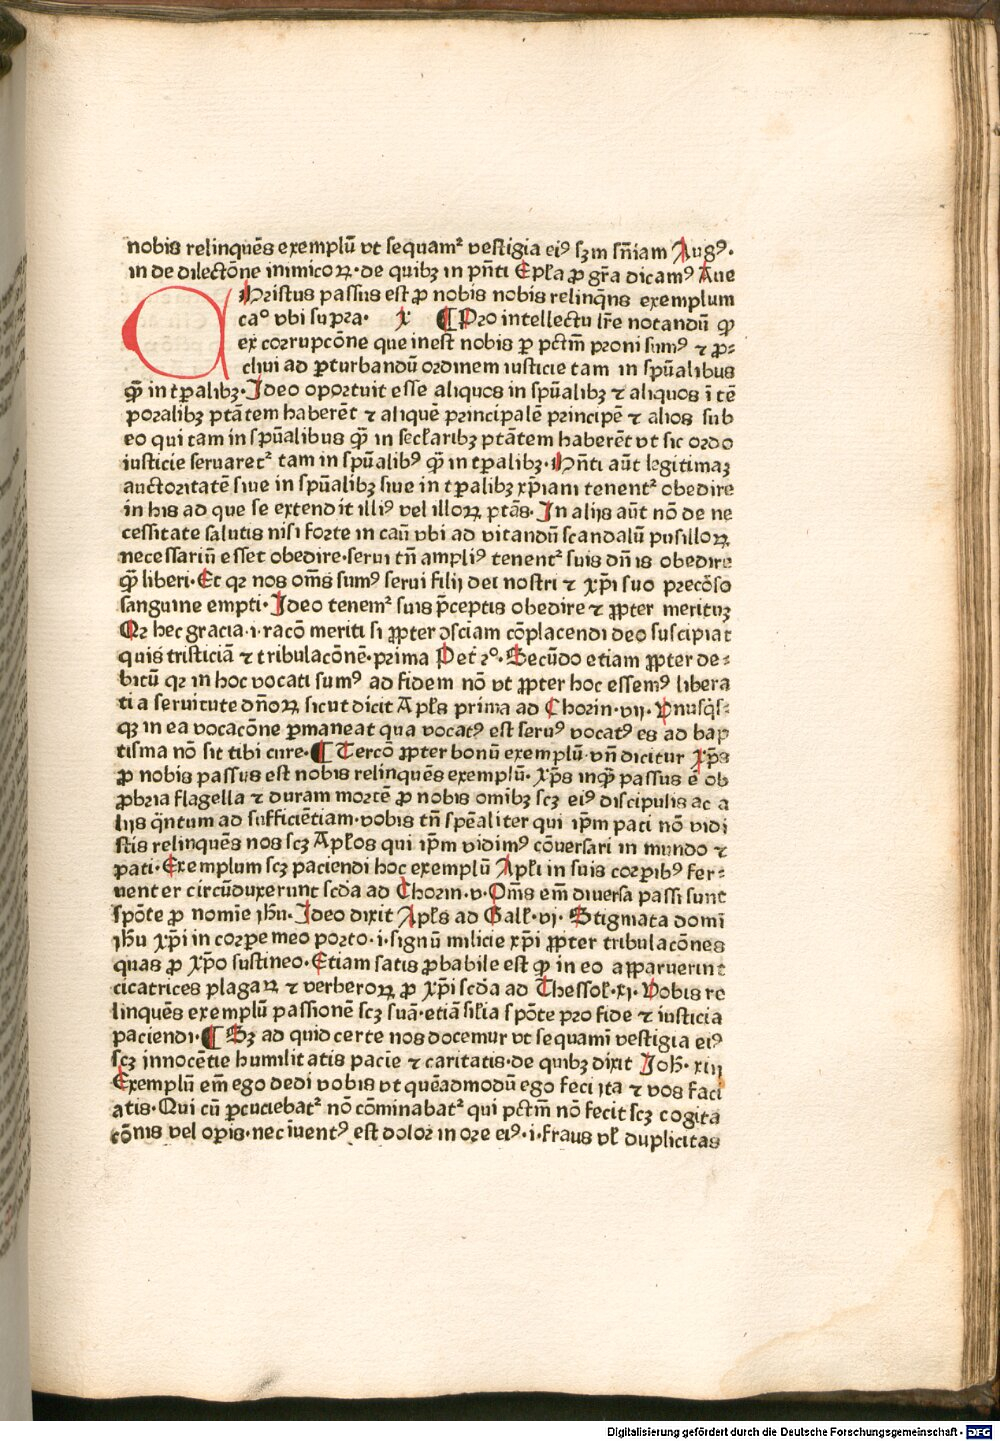 nobis relinquēs exemplū vt sequam᷑ vestigia eiꝰ sꝫm sn̄iam Augꝰ·
in de dilectōne inimicoꝝ·de quibꝫ in pn̄ti Epl̄a ꝓ gr̄a dicamꝰ Aue
hristus passus est ꝓ nobis nobis relinqn̄s exemplum
caº vbi supra· x ¶ Pro intellectu lr̄e notandū ꝙ
ex corrupcōne que inest nobis ꝑ pctm̄ proni sumꝰ ⁊ ꝓ⸗
cliui ad ꝑturbandū ordinem iusticie tam in spūalibus
ꝙ̄ in tꝑalibꝫ·Ideo oportuit esse aliquos in spūalibꝫ ⁊ aliquos ī tē
poralibꝫ ptātem haberēt ⁊ aliquē principalē principē ⁊ alios sub
eo qui tam in spūalibus ꝙ̄ in secl̄aribꝫ ptātem haberēt vt sic ordo
iusticie seruaret᷑ tam in spūalibꝰ ꝙ̄ in tꝑalibꝫ·hn̄ti aūt legitimaꝫ
auctoritatē siue in spūalibꝫ siue in tꝑalibꝫ xp̄iani tenent᷑ obedire
in his ad que se extendit illiꝰ vel illoꝝ ptās·In alijs aūt nō de ne
cessitate salutis nisi forte in caū vbi ad vitandū scandalū pusilloꝝ
necessariū esset obedire·serui tn̄ ampliꝰ tenent᷑ suis dn̄is obedire
ꝙ̄ liberi·Et qꝛ nos om̄s sumꝰ serui filij dei nostri ⁊ xp̄i suo precōso
sanguine empti·Ideo tenem᷑ suis p̄ceptis obedire ⁊ ꝓpter merituꝫ
Qꝛ hec gracia·i·racō meriti si ꝓpter ꝯsciam cōplacendi deo suscipiat
quis tristiciā ⁊ tribulacōnē·prima Pet 2º·Secūdo etiam ꝓpter de⸗
bitū qꝛ in hoc vocati sumꝰ ad fidem nō vt ꝓpter hoc essemꝰ libera
ti a seruitute dn̄oꝝ sicut dicit Apl̄s prima ad Chorin·vij·Vnusqͥs⸗
qꝫ in ea vocacōne ꝑmaneat qua vocatꝰ est seruꝰ vocatꝰ es ad bap
tisma nō sit tibi cure·¶ Tercō ꝓpter bonū exemplū·vn̄ dicitur xp̄s
ꝓ nobis passus est nobis relinquēs exemplū· xp̄s inqͣ passus ē ob
ꝓbria flagella ⁊ duram mortē ꝓ nobis omībꝫ scꝫ eiꝰ discipulis ac a
lijs qͣntum ad sufficiētiam·vobis tn̄ spēaliter qui ip̄m pati nō vidi
stis relinquēs nos scꝫ Apl̄os qui ip̄m vidimꝰ cōuersari in mundo ⁊
pati·Exemplum scꝫ paciendi hoc exemplū Apl̄i in suis corꝑibꝰ fer⸗
uenter circūduxerunt scd̄a ad Chorin·v·Om̄s em̄ diuersa passi sunt
spōte ꝓ nomīe jh̄u·Ideo dixit Apl̄s ad Gall̄·vj·Stigmata domī
jh̄u xp̄i in corꝑe meo porto·i·signū milicie xp̄i ꝓpter tribulacōnes
quas ꝓ xp̄o sustineo·Etiam satis ꝓbabile est ꝙ in eo apparuerint
cicatrices plagaꝝ ⁊ verberoꝝ ꝓ xp̄i scd̄a ad Thessol̄·xj·Vobis re
linquēs exemplū passionē scꝫ suā·etiā sil̄ia spōte pro fide ⁊ iusticia
paciendi·¶ Sꝫ ad quid certe nos docemur vt sequami vestigia eiꝰ
scꝫ innocētie humilitatis pacīe ⁊ caritatis·de quibꝫ dixit Joh̄·xiij
Exemplū em̄ ego dedi vobis vt quēadmodū ego feci jta ⁊ vos faci
atis·Qui cū ꝑcuciebat᷑ nō cōminabat᷑ qui pctm̄ nō fecit scꝫ cogita
tōnis vel oꝑis·nec īuentꝰ est dolor in ore eiꝰ·i·fraus vl̄ duplicitas
Digitalisierung gefördert durch die Deutsche Forschungsgemeinschaft - DFG